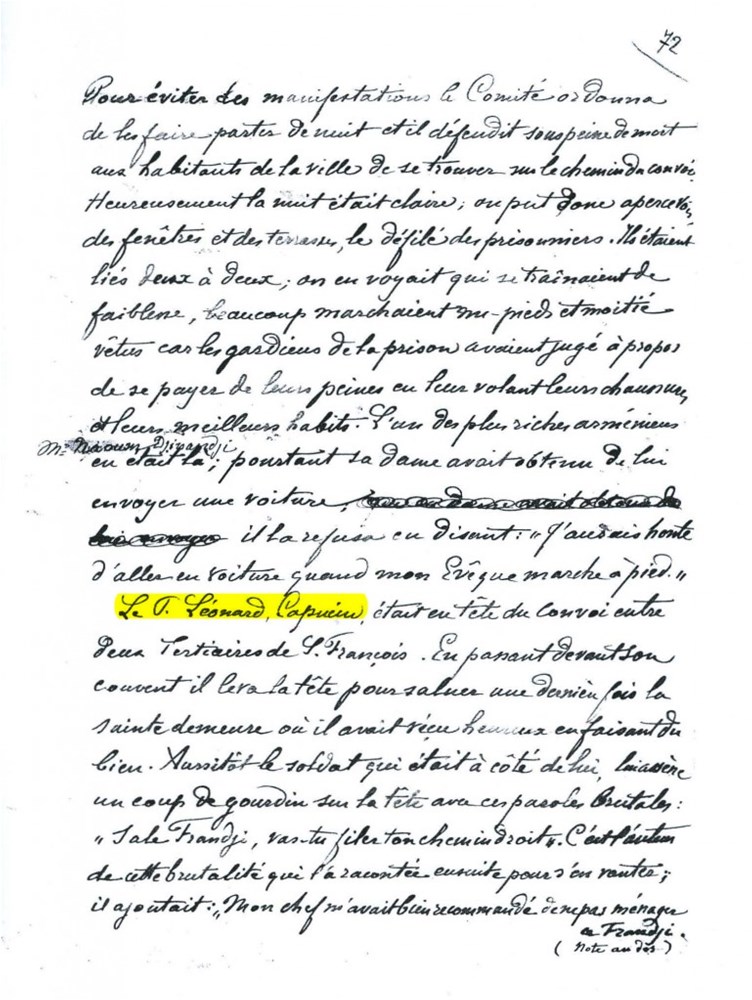 72
Pour éviter des manifestations le Comité ordonna
de les faire partir de nuit et il défendit sous peine de mort
aux habitants de la ville de se trouver sur le chemin du convoi
Heureusement la nuit était claire ; on put donc apercevoir,
des fenêtres et des terrasses, le défilé des prisonniers. Ils étaient
liés deux à deux ; on en voyait qui se traînaient de
faiblesse, beaucoup marchaient nu-pieds et moitié
vêtus car les gardiens de la prison avaient jugé à propos
de se payer de leurs peines en leur volant leurs chaussures
et leurs meilleurs habits. L'un des plus riches arméniens
Mr Naoum Djinandji
en était là ; pourtant sa dame avait obtenu de lui
envoyer une voiture, il la refusa en disant : "J'aurais honte
d'aller en voiture quand mon Evêque marche à pied."
Le P. Léonard, Capucin, était en tête du convoi entre
deux Tertiaires de S. François. En passant devant son
couvent il leva la tête pour saluer une dernière fois la
sainte demeure où il avait vécu heureux en faisant du
bien. Aussitôt le soldat qui était à côté de lui, lui assène
un coup de gourdin sur la tête avec ces paroles brutales :
"Sale Frandji, vas-tu filer ton chemin droit". C'est l'auteur
de cette brutalité qui l'a racontée ensuite pour s'en vanter ;
il ajoutait : "Mon chef m'avait bien recommandé de ne pas ménager
ce Frandji.
(Note au dos)